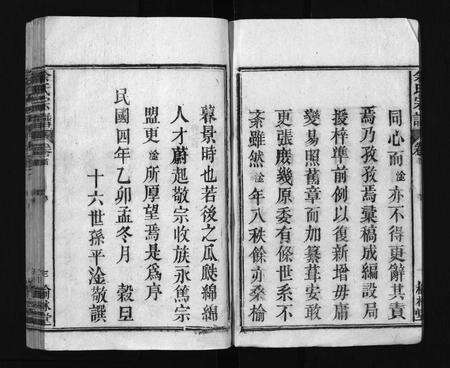 同心而淦亦不得更辭其責
焉乃孜孜焉彙稿成編設局
授梓準前例以復新增毋庸
變易照舊章而加纂葺安敢
更張庶幾原委有條世系不
紊雖然淦年八秩餘亦桑榆
暮景時也若後之瓜瓞綿綿
人才蔚起敬宗收族永篤宗
盟更淦所厚望焉是為序
民國四年乙卯孟冬月 穀旦
十六世孫平淦敬譔
余氏宗譜
余氏宗譜